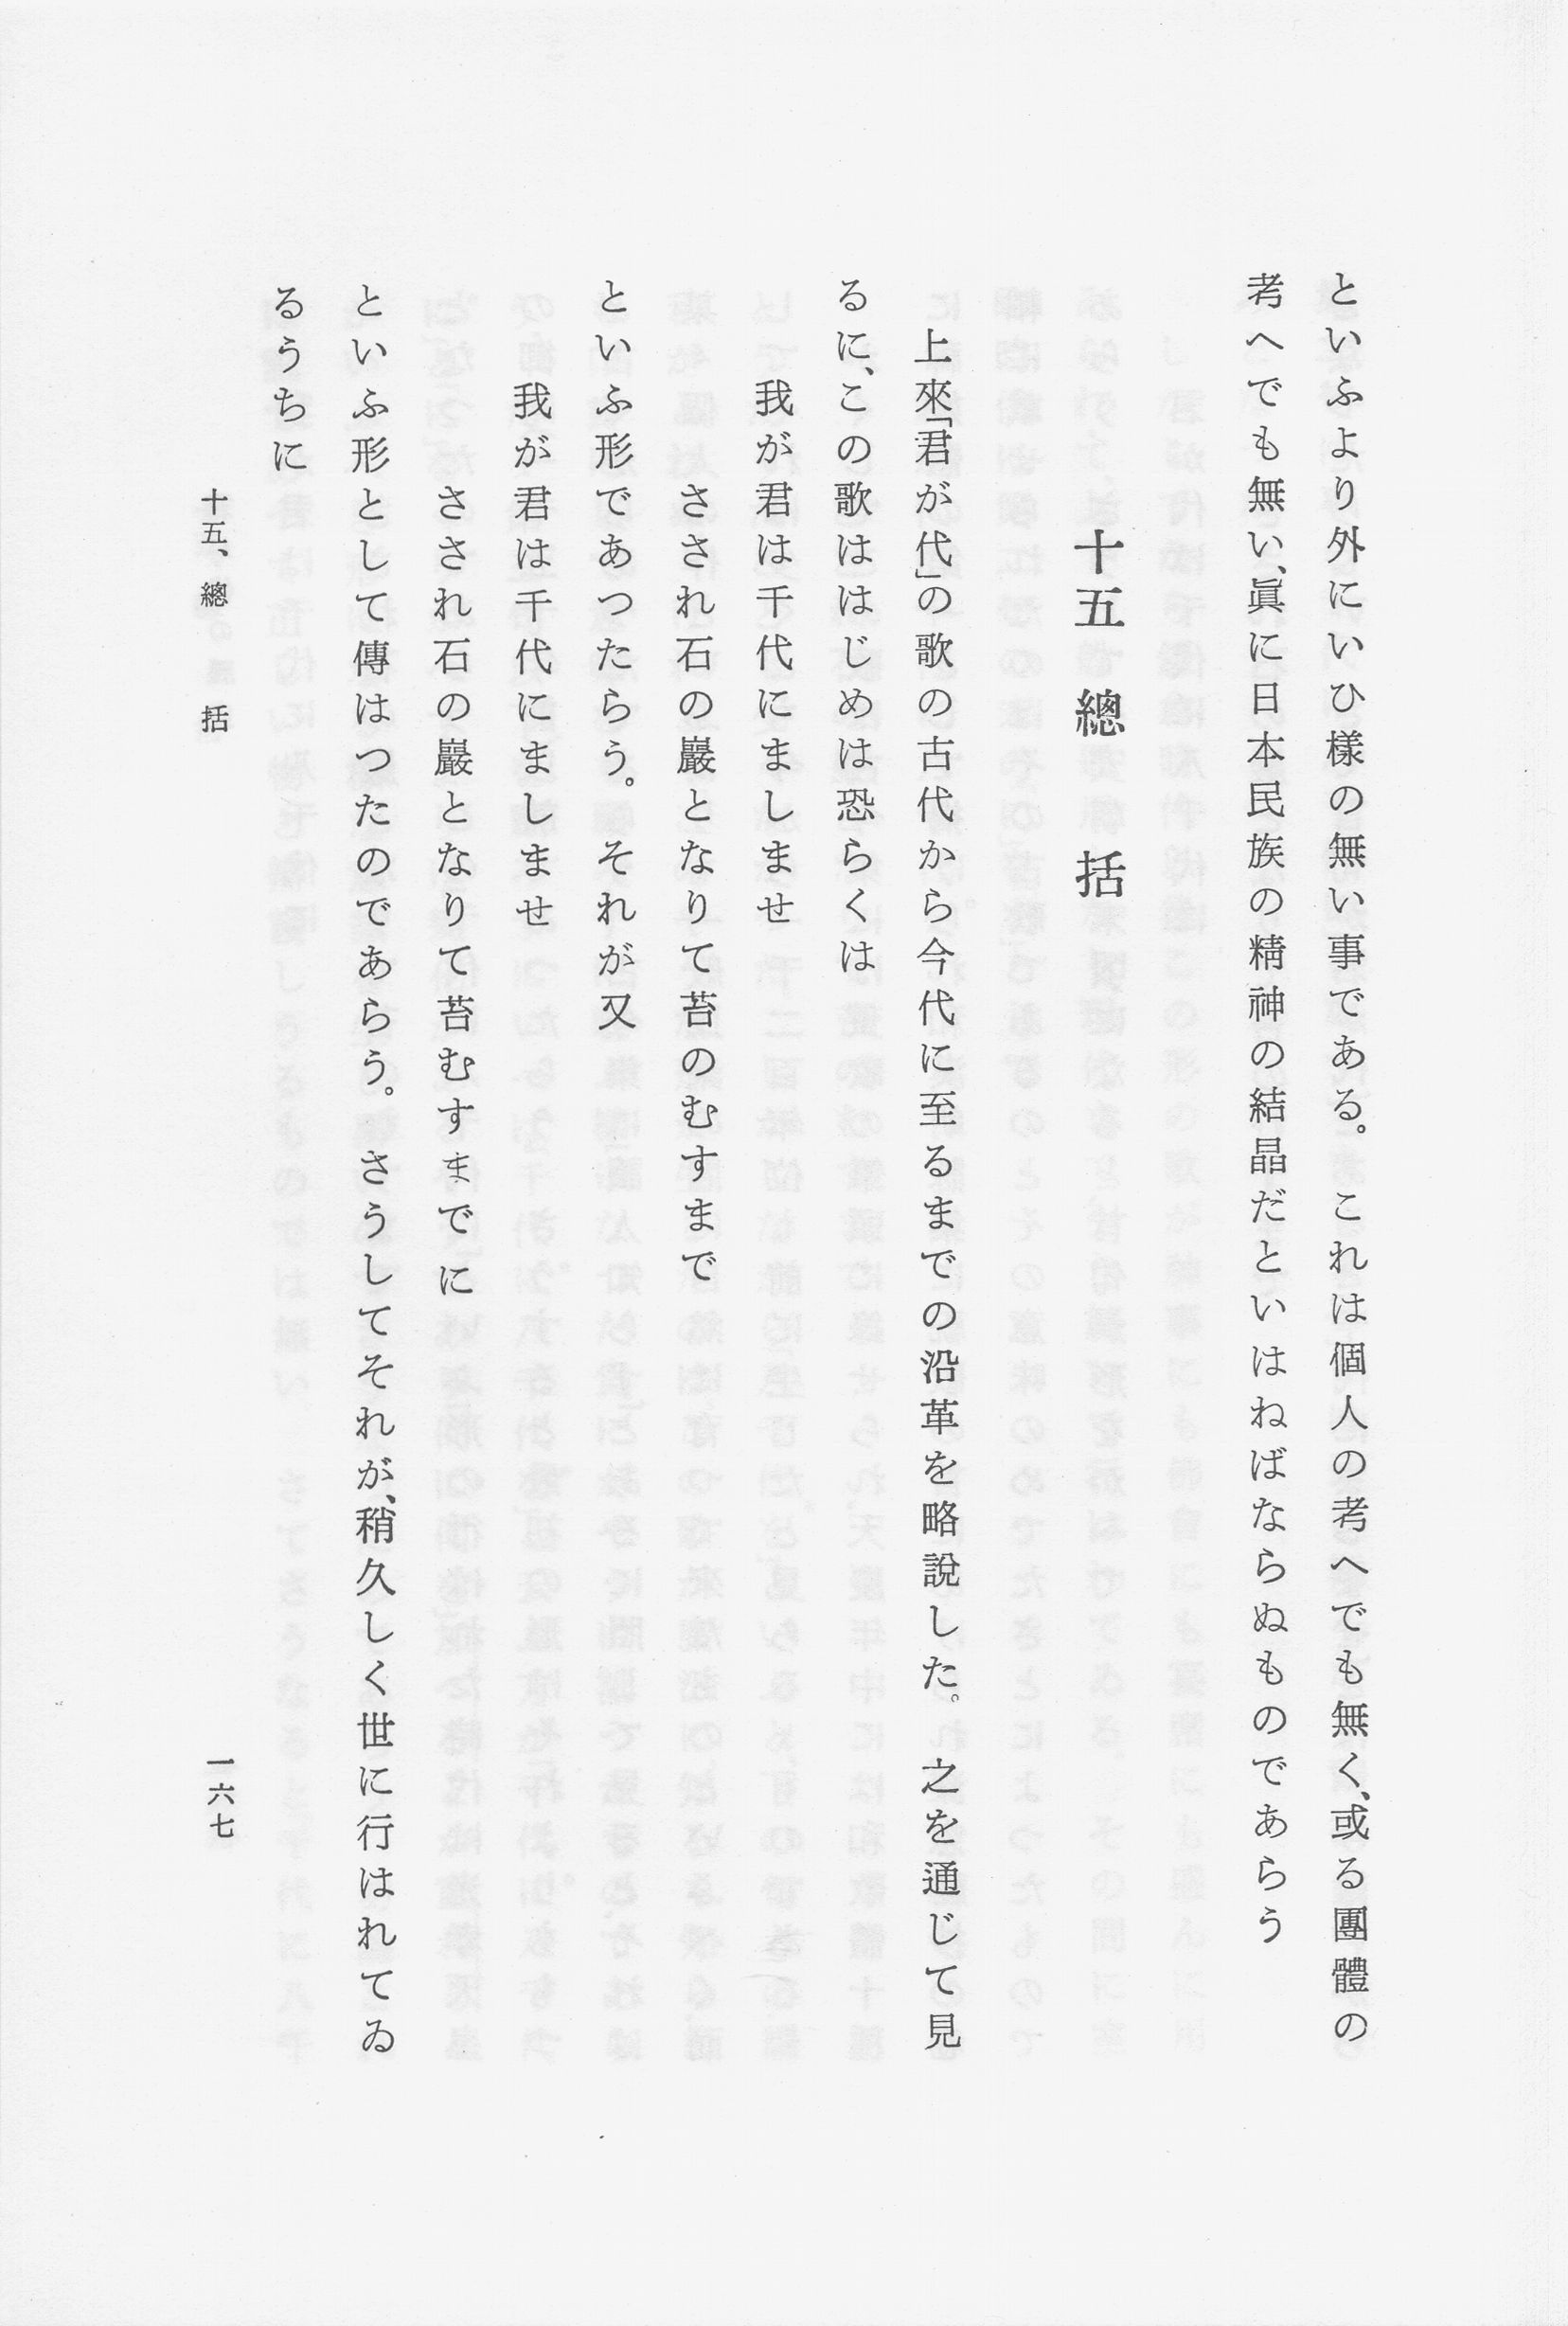 といふより外にいひ樣の無い事である。これは個人の考へでも無く、或る團體の
考へでも無い、眞に日本民族の精神の結晶だといはねばならぬものであらう
十五 總 括
上來「君が代」の歌の古代から今代に至るまでの沿革を略說した。之を通じて見
るに、この歌ははじめは恐らくは
我が君は千代にましませ
さされ石の巖となりて苔のむすまで
といふ形であつたらう。それが又
我が君は千代にましませ
さされ石の巖となりて苔むすまでに
といふ形として傳はつたのであらう。さうしてそれが、稍久しく世に行はれてゐ
るうちに
十五、總 括
一六七